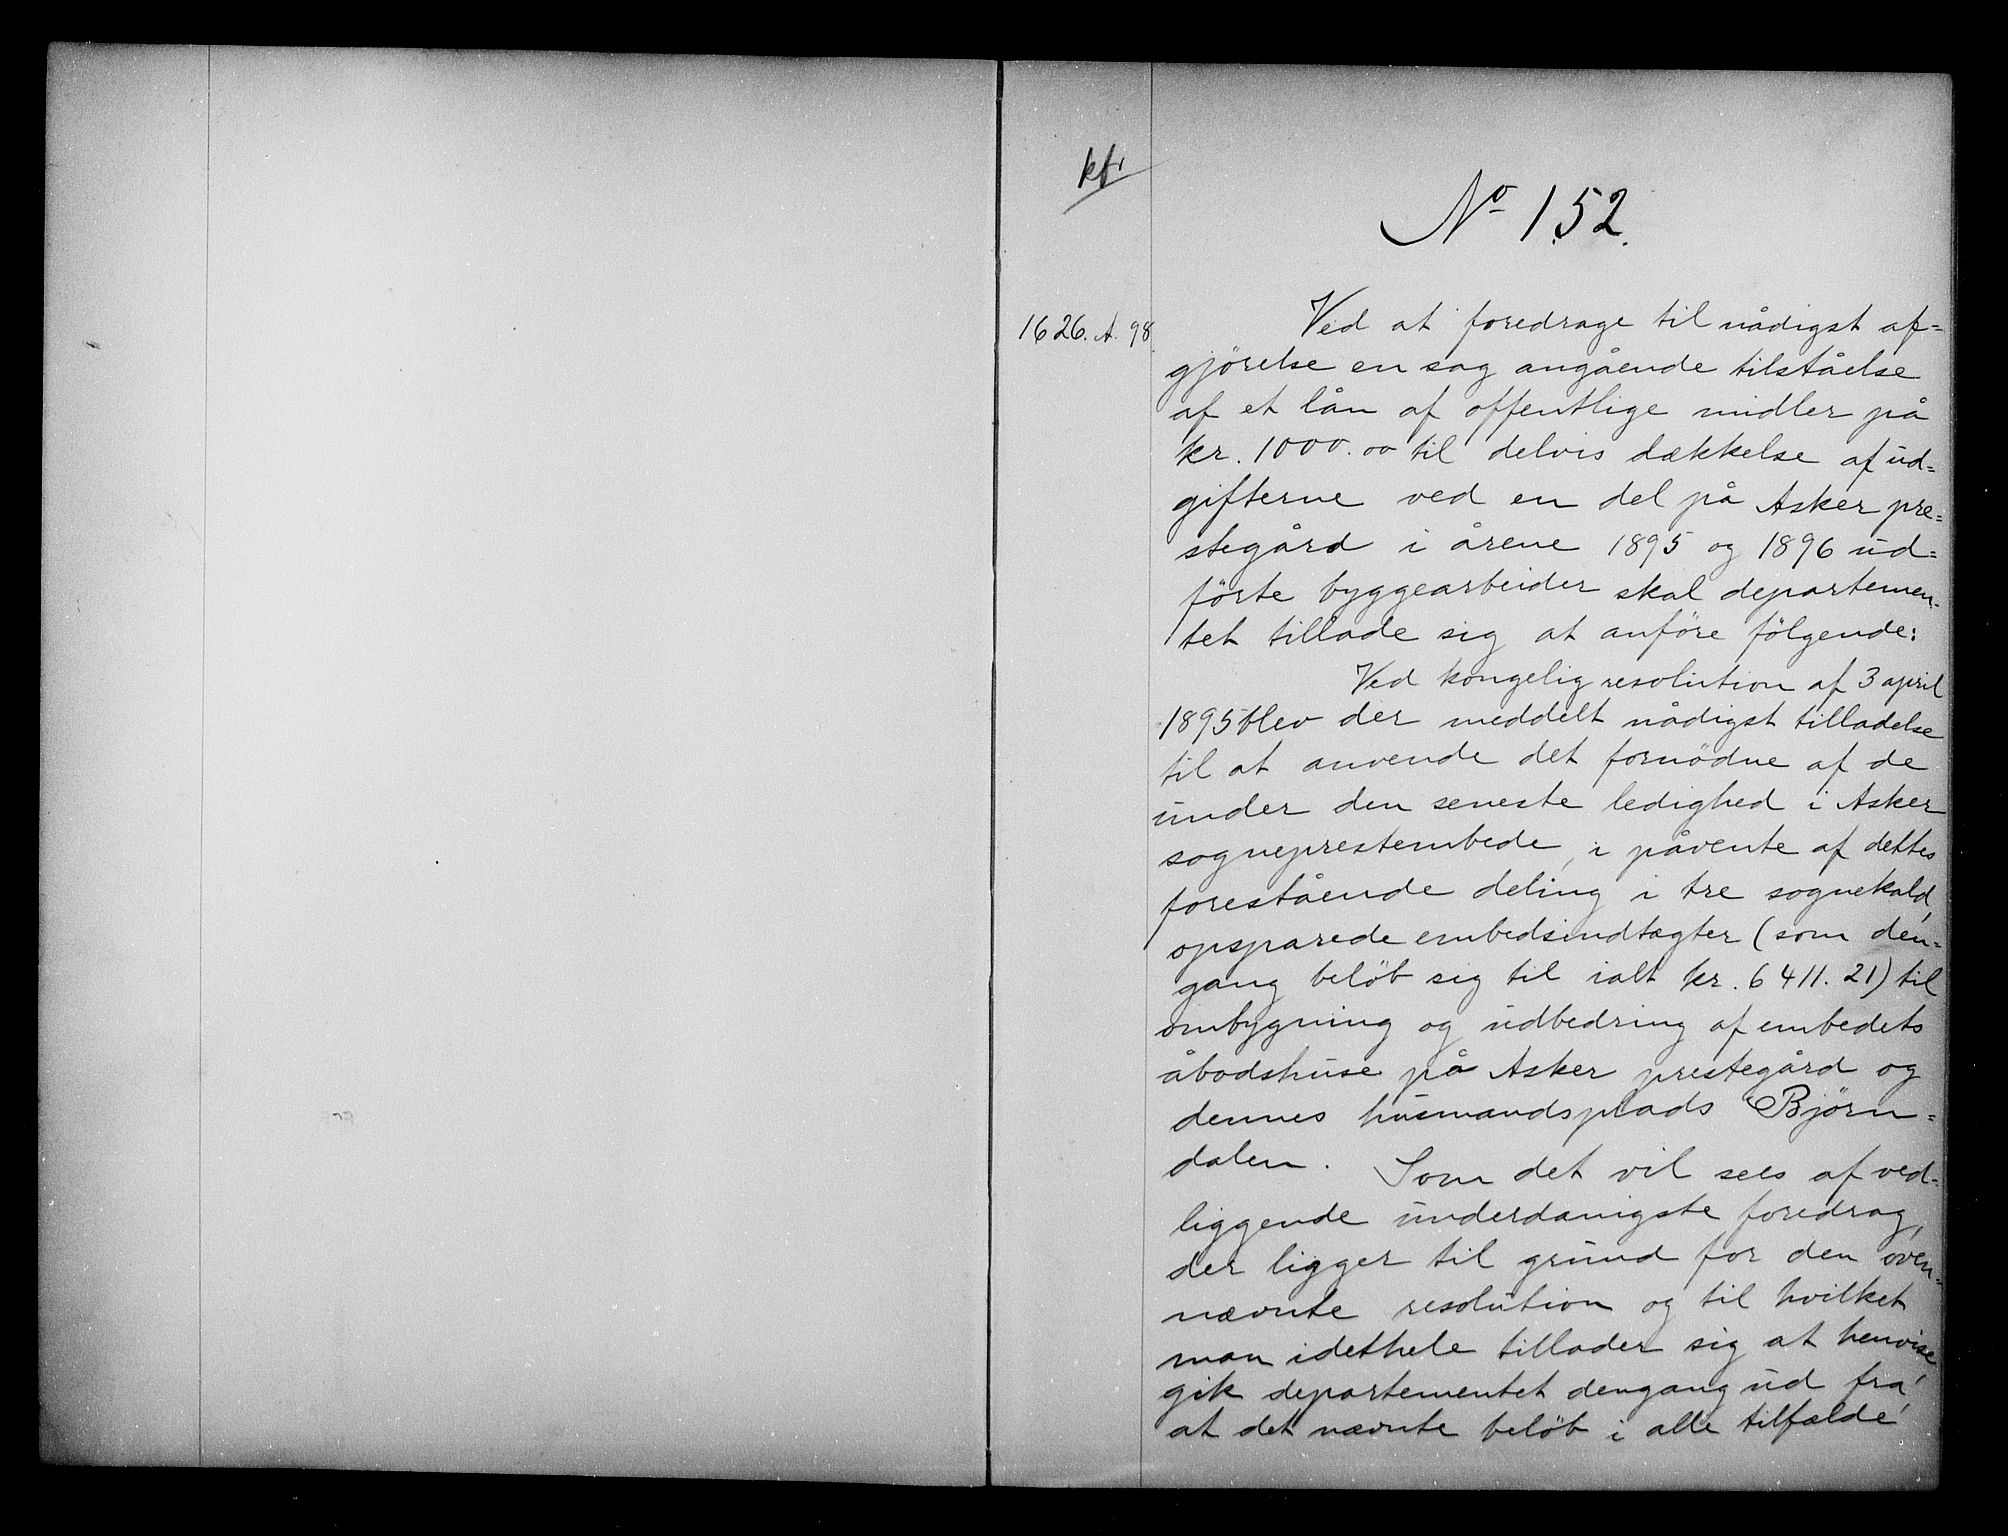 kfr
No 152.
1626. A. 98.
Ved at foredrage til nådigst af=
gjörelse en sag angående tilståelse
af et lån af offentlige midler på
kr. 1000.00 til delvis dækkelse af ud=
gifterne ved en del på Asker pre=
stegård i årene 1895 og 1896 ud=
förte byggearbeider skal departemen-
tet tillade sig at anföre fölgende:
Ved kongelig resolution af 3 april
1895 blev der meddelt nådigst tilladelse
til at anvende det fornödne af de
under den seneste ledighed i Asker
sogneprestembede, i påvente af dettes
forestående deling i tre sognekald,
opsparede embedsindtægter (som den=
gang belöb sig til ialt kr. 6411.21) til
ombygning og udbedring af embedets
åbodshuse på Asker prestegård og
dennes husmandsplads Björn=
dalen. Som det vil sees af ved=
liggende underdanigste foredrag,
der ligger til grund for den oven=
nævnte resolution og til hvilket
man idethele tillader sig at henvise,
gik departementet dengang ud fra,
at det nævnte belöb i alle tilfælde